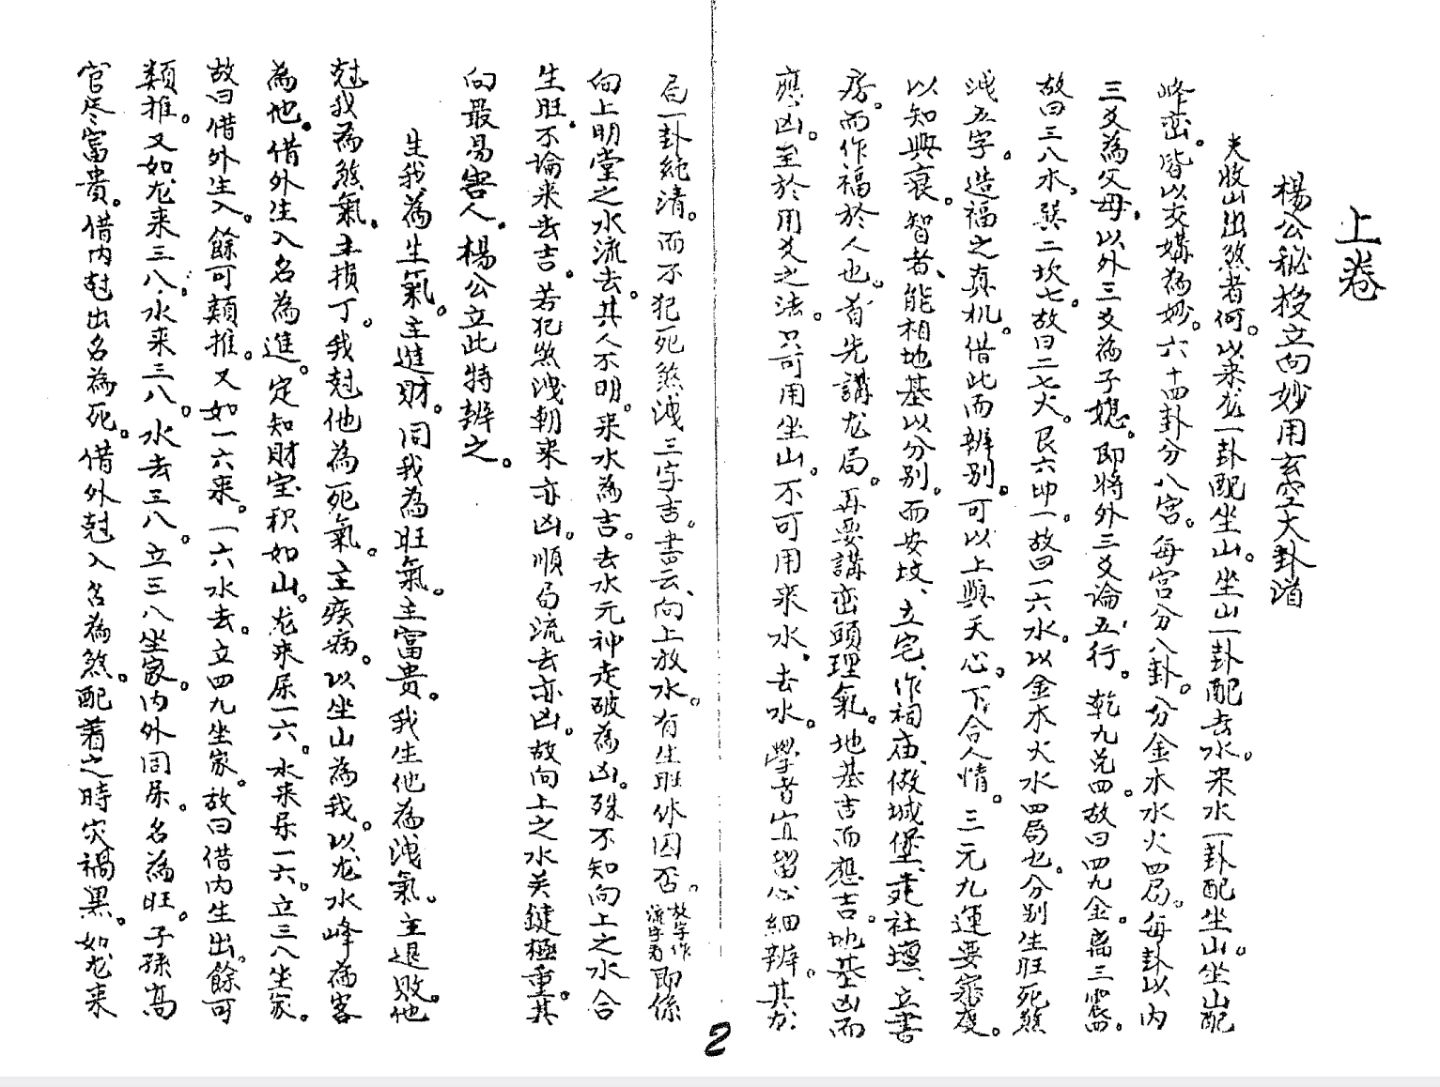 上卷
楊公秘授立向妙用玄空大卦道
夫收山出煞者何。以来龙一卦配坐山。坐山一卦配去水。来水一卦配坐山。坐山配
峰峦。皆以交媾為妙。六十四卦分八宮。每宮分八卦。分金木水火四局。每卦以内
三爻為父母。以外三爻為子媳。即将外三爻論五行。乾九兑四故曰四九金。離三震八
故曰三八木。巽二坎七。故曰二七火。艮六坤一。故曰一六水。以金木火水四局也。分別生旺死煞
洩五字。造福之真机。借此而辨别。可以上與天心。下合人情。三元九運要深度。
以知興衰。智者、能相地基以分别。而安坟、立宅、作祠庙、做城堡、建社壇、立書
房。而作福於人也。首先講龙局。再要講峦頭理氣。地基吉而應吉。地基凶而
應凶。至於用爻之法。只可用坐山。不可用来水、去水。學者宜留心細辨。其为
局一卦純清。而不犯死煞洩三字吉。書云、向上放水。有生旺休囚否。放字作流字看即係
向上明堂之水流去。其人不明。来水為吉。去水元神走破為凶。殊不知向上之水合
生旺。不論来去吉。若犯煞洩朝来亦凶。順局流去亦凶。故向上之水关鍵極重。其
向最易害人。楊公立此特辨之。
生我為生氣。主進財。同我為旺氣。主富贵。我生他為洩氣。主退敗。他
尅我為煞氣。主損丁。我尅他為死氣。主疾病。以坐山為我。以龙水峰為客
為他。借外生入名為進。定知財宝积如山。龙来屎一六。水来屎一六。立三八坐家。
故曰借外生入。餘可類推。又如一六来。一六水去。立四九坐家。故曰借内生出。餘可
類推。又如龙来三八。水来三八。水去三八。立三八坐家。内外同屎。名為旺。子孫高
官尽富贵。借内尅出名為死。借外尅入名為煞。配着之時灾禍黑。如龙来
2